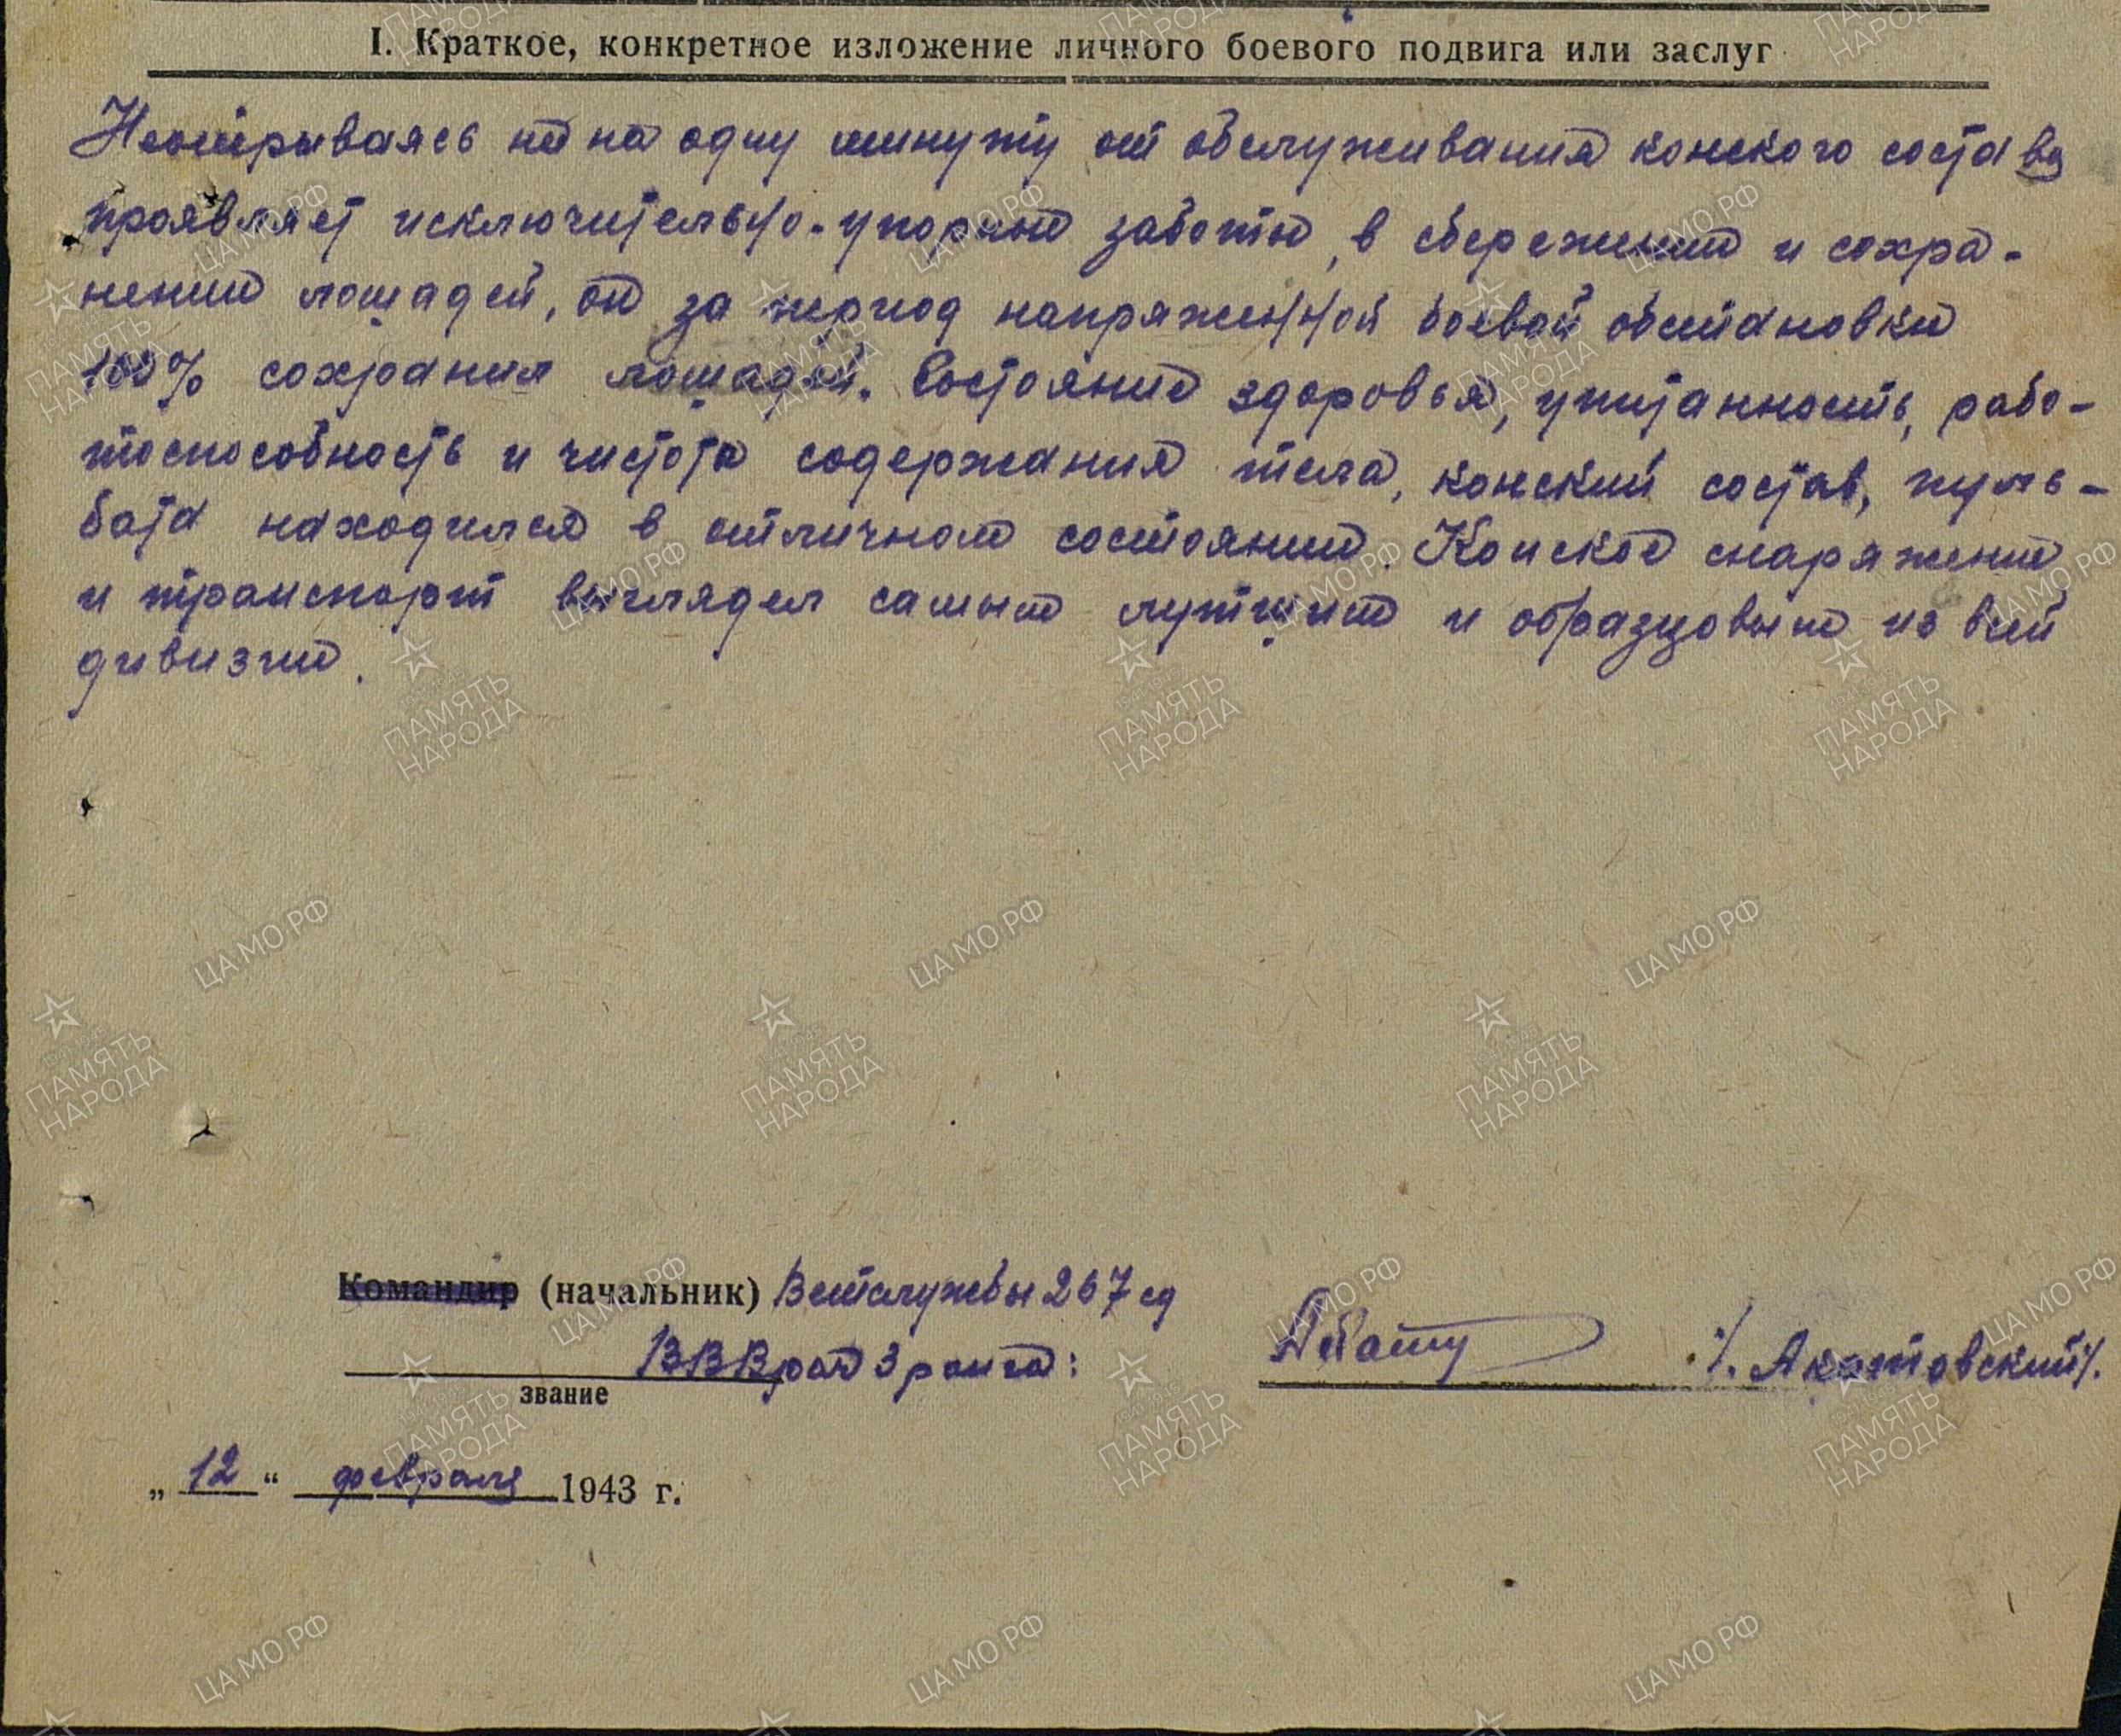 I. Краткое, конкретное изложение личного боевого подвига или заслуг
Неотрываясь не на одну минуту от обслуживания конского состава
проявляет исключительно-упорное заботы, в сбережении и сохра-
нении лошадей, он за период напряженной боевой обстановки
100% сохранил лошадей. Состояние здоровья, упитанность, рабо-
тоспособность и чистота содержания тела, конский состав, пуль-
бата находился в отличном состоянии. Конское снаряжение
и транспорт выглядел самым лутшим и образцовым из всей
дивизии.
Командир (начальник) Ветслужбы 267 сд
ВВВрач 3 ранга:
/. Акатовский/.
звание
„ 12 “ февраля 1943 г.